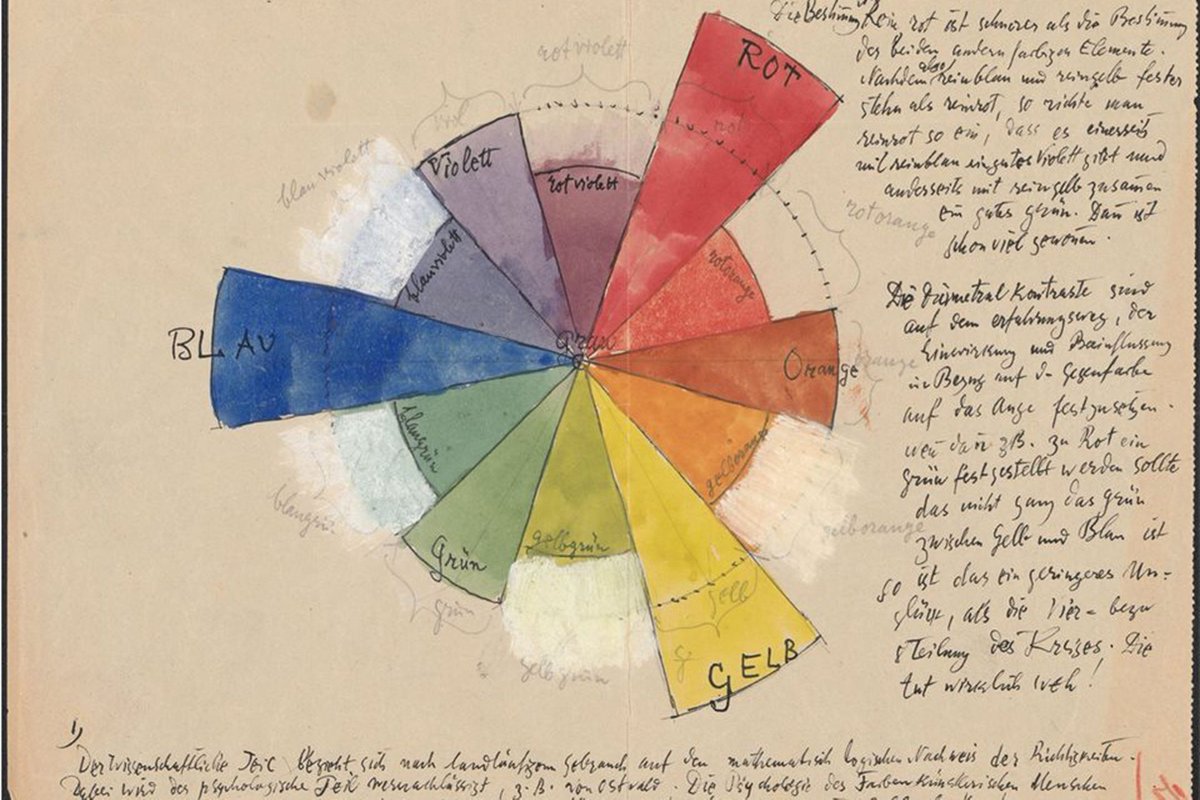 Die Bestimmung
Rein rot ist schwerer als die Bestimmung
der beiden andern farbigen Elemente.
Nachdem also reinblau und reingelb fester
stehn als reinrot, so richte man
reinrot so ein, dass es einerseits
mit reinblau ein gutes Violett gibt und
anderseits mit reingelb zusamen
ein gutes grün. Dan ist
schon viel gewonen.
Die diametral Kontraste sind
auf dem erfahrungsweg, der
Einwirkung und Beeinflussung
in Bezug auf d Gegenfarbe
auf das Auge festzusetzen.
wen dan zB. zu Rot ein
grün festgestellt werden sollte
das nicht ganz das grün
zwischen Gelb und Blau ist
so ist das ein geringeres Un-
glück, als die vier= bezw
8 Teilung des Kreises. Die
tut wirklich weh!
rotviolett
viol
rot
blauviolett
rotorange
orange
gelborange
gelb
gelbgrün
grün
blaugrün
ROT
Violett
rotviolett
blauviolett
rotorange
BLAU
Grau
Orange
blaugrün
gelborange
Grün
gelbgrün
GELB
1)
Der wissenschaftliche Teil bezieht sich nach landläufigem gebrauch auf den mathematisch logischen Nachweis der Richtigkeiten.
Dabei wird der psychologische Teil vernachlässigt, z.B. von Ostwald. Die Psychologie des Farben künstlerischen Menschen